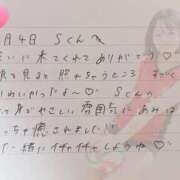 月4日 Sくんへ
いに来てくれてありがとう♡
見る 照れちゃうところ
めいかったよ〜♡ Sくん
って身でやさしい雰囲気に あみは
っちゃ癒されました!!
た一緒にイチャイチャしようね♡